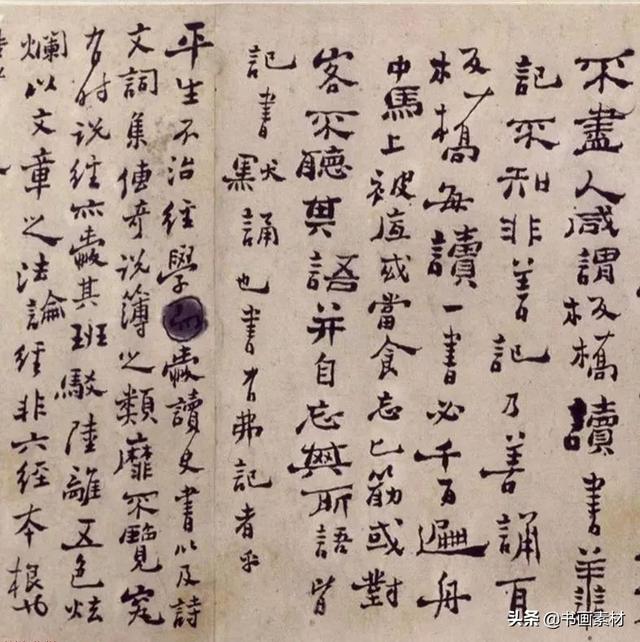 不盡人咸謂板橋讀書善
記不知非善記乃善誦耳
板橋每讀一書必千百遍舟
中馬上被底或當食忘匕筯或對
客不聽其語并自忘其所語皆
記書默誦也書有弗記者乎
平生不治經學而愛讀史書以及詩
文詞集傳奇說簿之類靡不覽究
有時說經亦愛其班駁陸離五色炫
爛以文章之法論經非六經本根也
头条 @书画素材